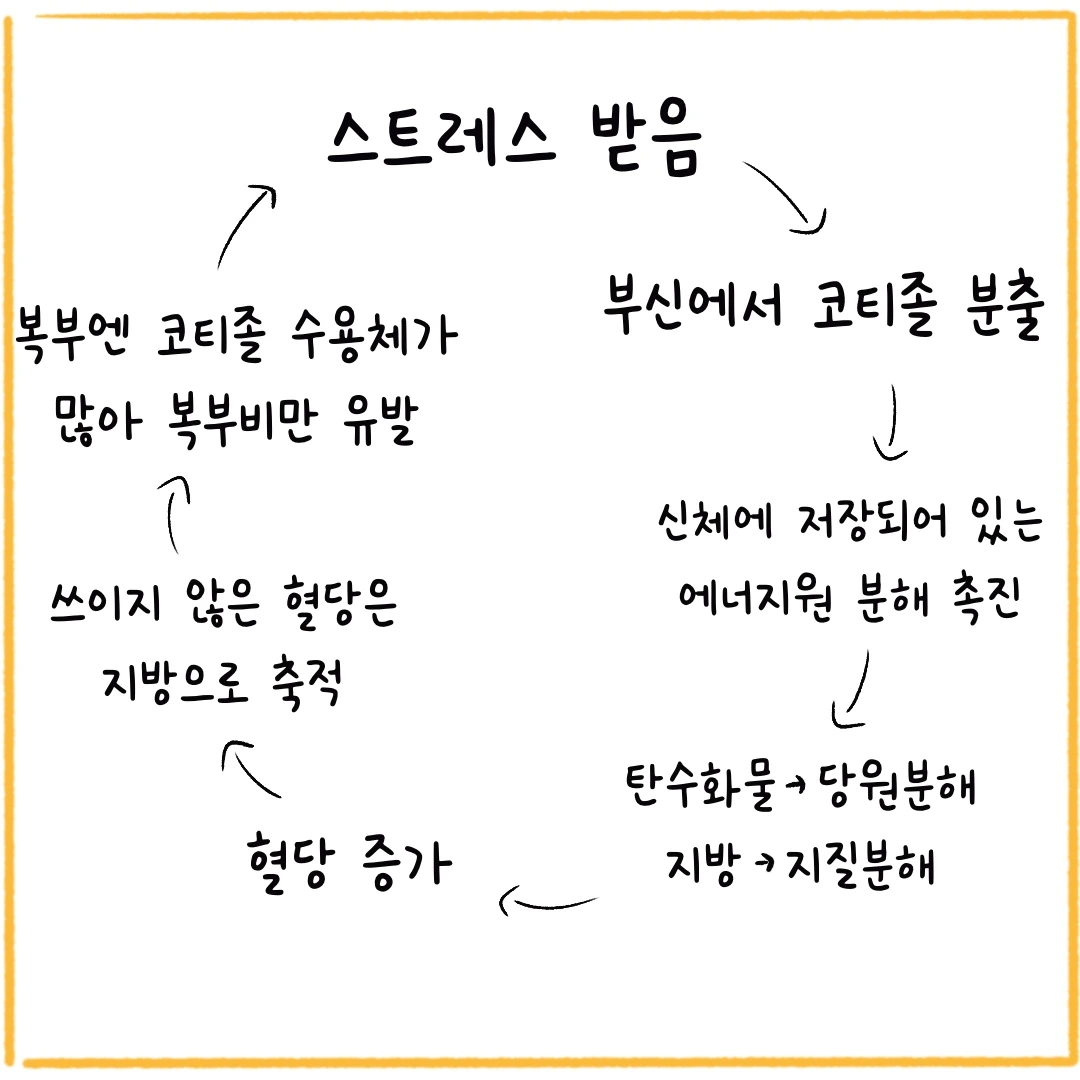 스트레스 받음
부신에서 코티졸 분출
신체에 저장되어 있는
에너지원 분해 촉진
탄수화물→당원분해
지방→지질분해
혈당 증가
쓰이지 않은 혈당은
지방으로 축적
복부엔 코티졸 수용체가
많아 복부비만 유발